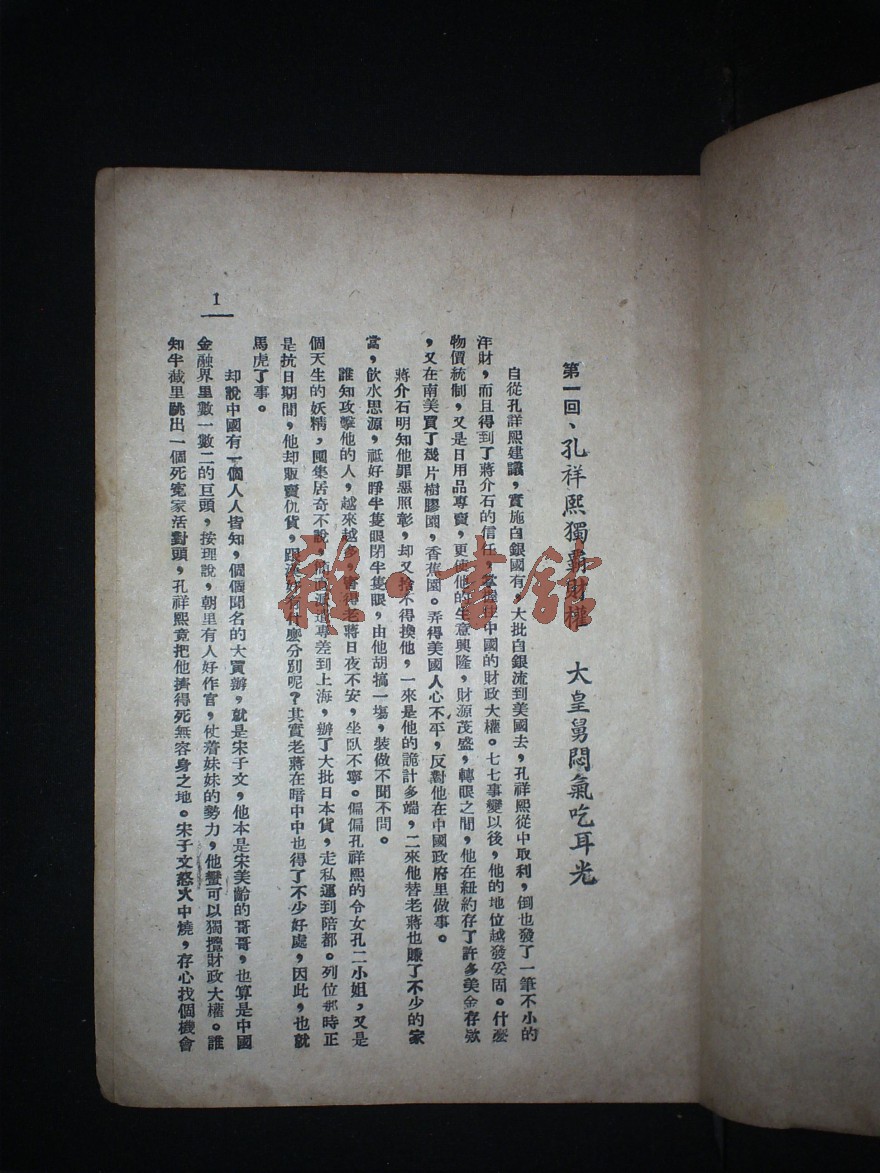 第一回、孔祥熙獨霸財權　大皇舅悶氣吃耳光
自從孔詳熙建議，實施白銀國有，大批白銀流到美國去，孔祥熙從中取利，倒也發了一筆不小的
洋財，而且得到了蔣介石的信任，掌握住中國的財政大權。七七事變以後，他的地位越發妥固。什麽
物價統制，又是日用品專賣，更使他的生意興隆，財源茂盛，轉眼之間，他在紐約存了許多美金存欵
，又在南美買了幾片樹膠園，香蕉園。弄得美國人心不平，反對他在中國政府里做事。
蔣介石明知他罪惡照彰，却又捨不得換他，一來是他的詭計多端，二來他替老蔣也賺了不少的家
當，飲水思源，祗好睜半隻眼閉半隻眼，由他胡搞一塲，裝做不聞不問。
誰知攻擊他的人，越來越多，害得老蔣日夜不安，坐臥不寧。偏偏孔祥熙的令女孔二小姐，又是
個天生的妖精，囤集居奇不說，而且派遣專差到上海，辦了大批日本貨，走私運到陪都。列位那時正
是抗日期間，他却販賣仇貨，跟漢奸有什麽分別呢？其實老蔣在暗中中也得了不少好處，因此，也就
馬虎了事。
却說中國有一個人人皆知，個個聞名的大買辦，就是宋子文，他本是宋美齡的哥哥，也算是中國
金融界里數一數二的巨頭，按理說，朝里有人好作官，仗着妹妹的勢力，他蠻可以獨攬財政大權。誰
知半截里跳出一個死寃家活對頭，孔祥熙竟把他擠得死無容身之地。宋子文怒火中燒，存心找個機會
1
雜·書館